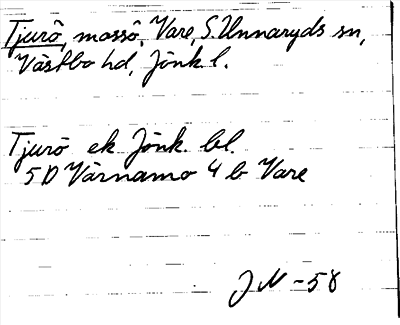 Tjurö, mossö, Vare, S. Unnaryds sn,
Västbo hd, Jönk. l.
Tjurö ek Jönk. bl.
5D Värnamo 4 b Vare
JN -58